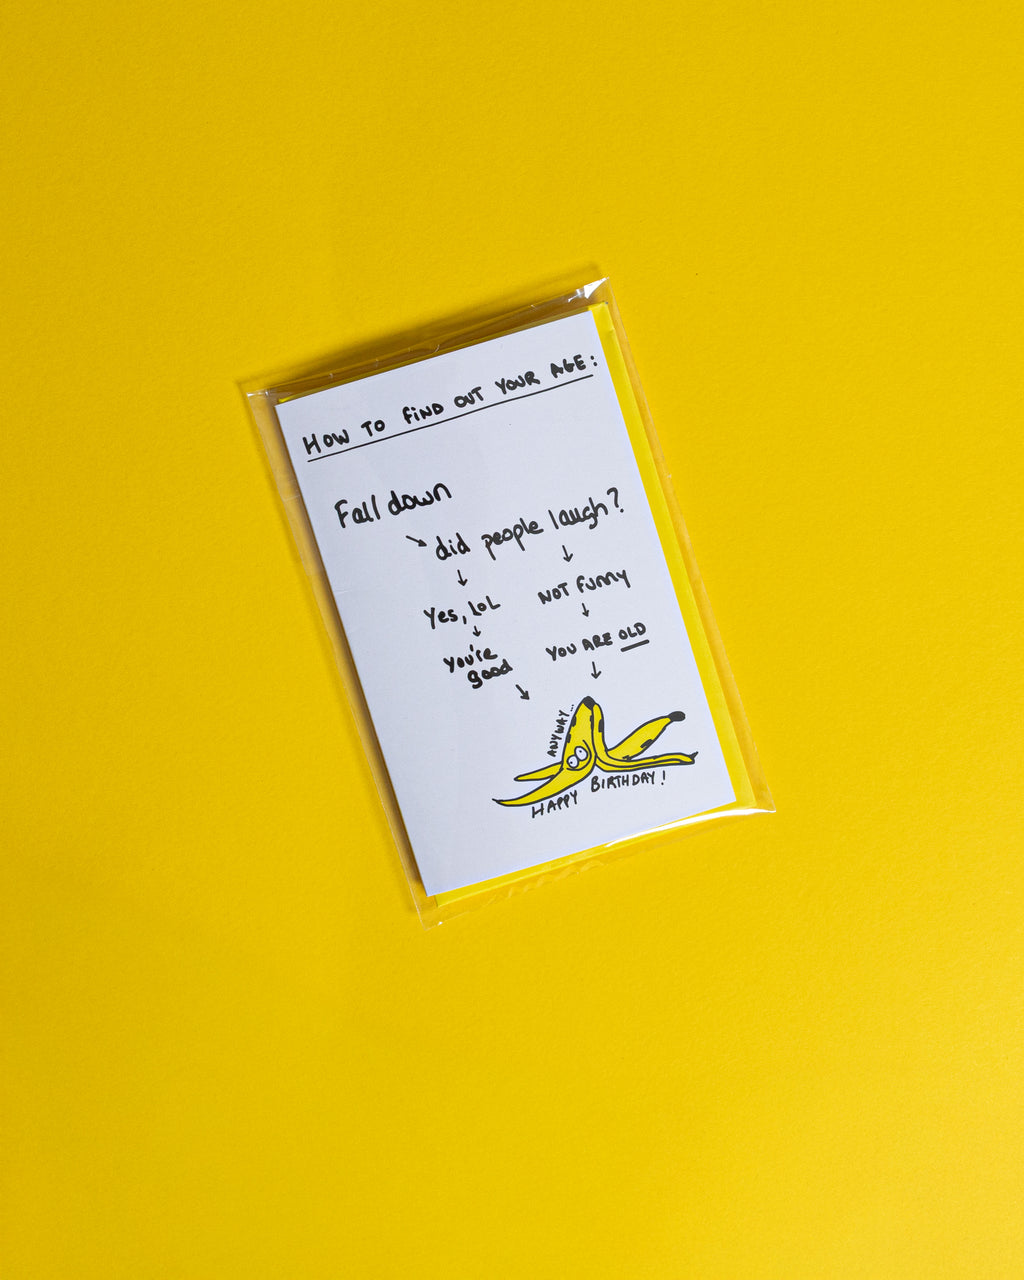 HOW TO FIND OUT YOUR AGE:
Fall down
did people laugh?
Yes, LOL
NOT funny
you're
good
YOU ARE OLD
ANYWAY...
HAPPY BIRTHDAY!